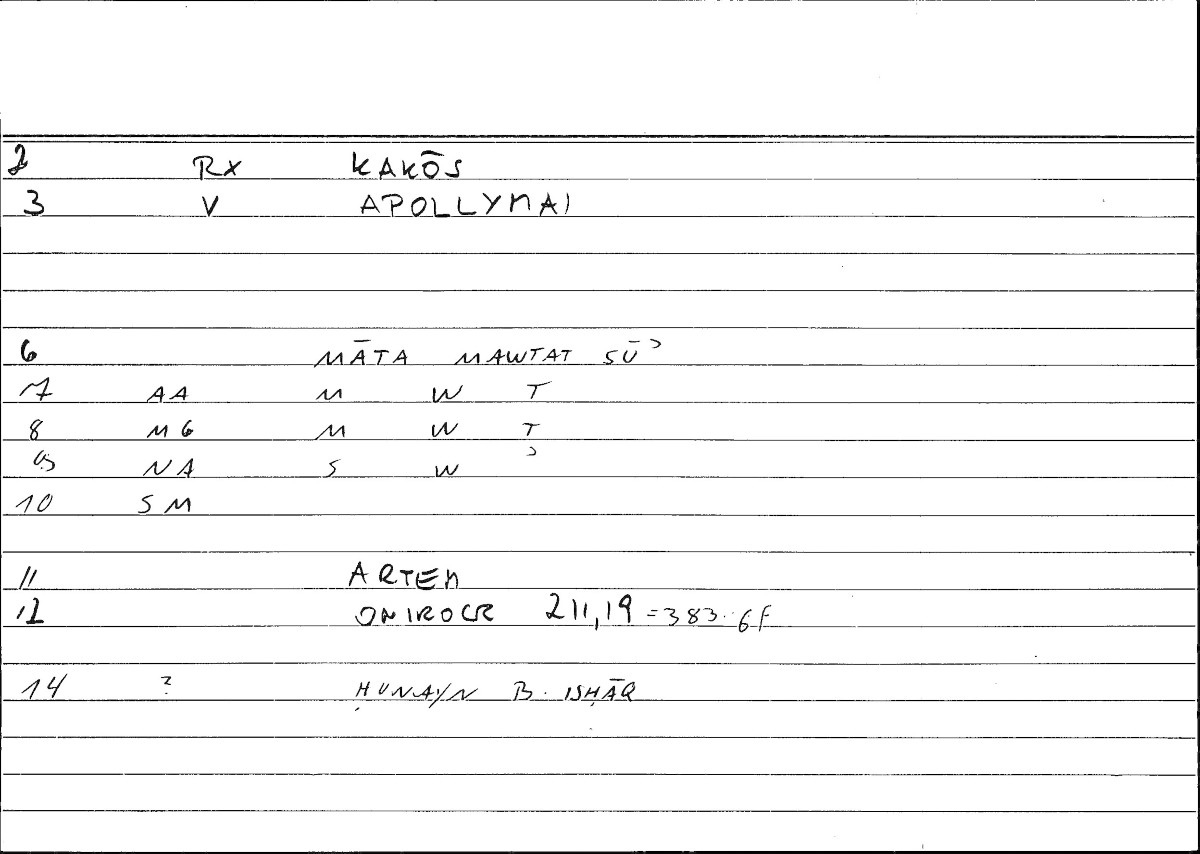 2 RX KAKŌS
3 V APOLLYMAI
6 MĀTA MAWTAT SŪʾ
7 AA M W T
8 MG M W T
9 NA S W ʾ
10 SM
11 ARTEM
12 ONIROCR 211,19 =383.6f
14 ? ḤUNAYN B. ISḤĀQ